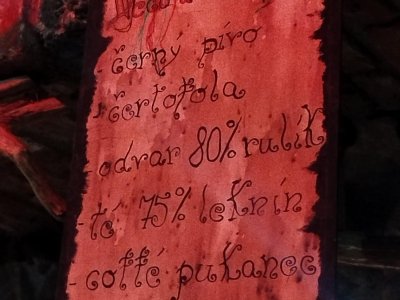 - černý pivo
- čertofola
- odvar 80% rulík
- té 75% leknín
- coffé pukanec